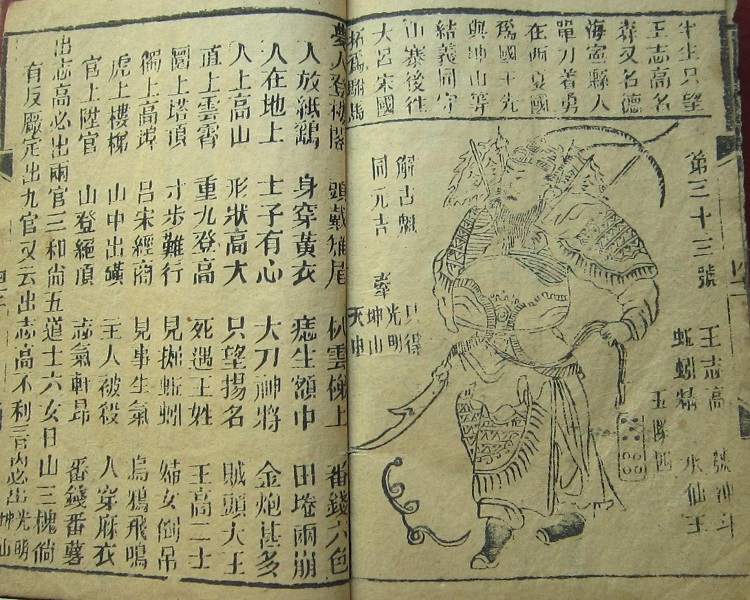 半生只望
王志高名
奔又名德
海寧縣人
單刀着勇
在西夏國
為國王先
與坤山等
結義同守
山寨後往
大呂宋國
招為駙馬
第三十三號
王志高
蚯蚓精 水仙王
解古魁
同元吉
只得
光明
坤山
天申
夢人登梯閣 頭戴雉尾 扒雲梯上 番錢六色
人放紙鷂 身穿黃衣 痣生額中 田塍兩崩
人在地上 士子有心 大刀神將 金炮甚多
人上高山 形狀高大 只望揚名 賊頭大王
直上雲霄 重九登高 死遇王姓 王高二士
圈上塔頂 寸步難行 見掘蚯蚓 婦女倒吊
獨上高 呂宋經商 見事生氣 烏鴉飛鳴
虎上樓梯 山中出礦 主人被殺 人穿麻衣
官上陞官 山登絕頂 志氣軒昂 番錢番薯
出志高必出兩官三和尚五道士六女日山三槐倘
有反嚴定出九官又云出志高不利三官內必出光明坤山